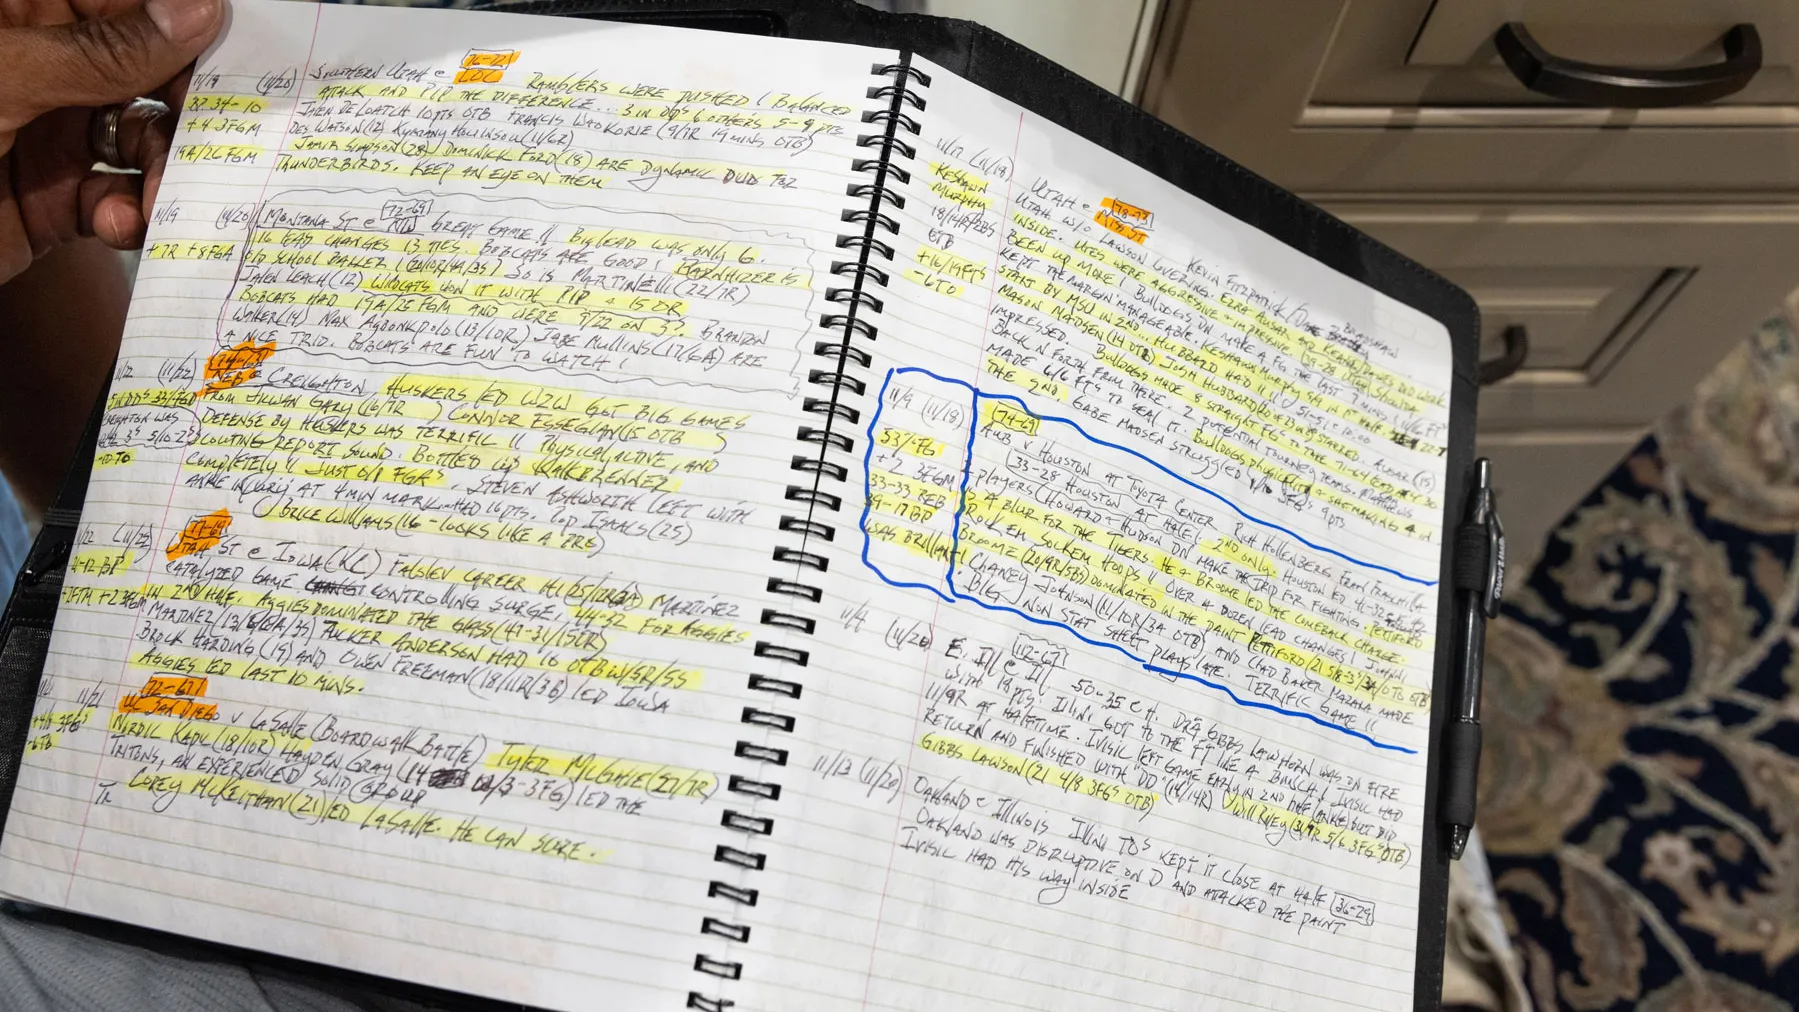 76-72
11/19 (11/20) SOUTHERN UTAH @ LUC RAMBLERS WERE PUSHED! BALANCED
ATTACK AND PIP THE DIFFERENCE... 3 IN DD'S 6 OTHERS 5-9 PTS
34-10 JADEN DELOATCH 10 PTS OTB FRANCIS NWAOKORIE (9/7R 19 MINS OTB)
+4 3FGM DES WATSON (12) KYMANY HOUINSOU (11/6R)
JAMIR SIMPSON (28) DOMINICK FORD (18) ARE DYNAMIC DUDS FOR
19A/26 FGM THUNDERBIRDS. KEEP AN EYE ON THEM
72-69
11/19 (11/20) MONTANA ST @ NW GREAT GAME!! BIG LEAD WAS ONLY 6.
16 LEAD CHANGES 13 TIES. BOBCATS ARE GOOD! BARNHIZER IS
+7R +8FGA OLD SCHOOL BALLER SO IS MARTINELLI (22/7R)
JALEN LEACH (12) WILDCATS WON IT WITH PIP + 15 OR
BOBCATS HAD 19A/25 FGM AND WERE 9/22 ON 3'S BRANDON
WALKER (14) MAX AGBONKPOLO (13/10R) JABE MULLINS (17/6A) ARE
A NICE TRIO. BOBCATS ARE FUN TO WATCH!
74-63
11/22 NEB @ CREIGHTON HUSKERS ED W2W GOT BIG GAMES
FROM JUWAN GARY (16/7R) CONNOR ESSEGIAN (15 OTB)
CREIGHTON WAS DEFENSE BY HUSKERS WAS TERRIFIC!! PHYSICAL, ALIVE, AND
SCOUTING REPORT SOUND. BOTTLED UP KALKBRENNER
-10 TO COMPLETELY!! JUST 0/1 FGA'S. STEVEN ASHWORTH LEFT WITH
ANKLE INJURY AT 4 MIN MARK HAD 16 PTS. POP ISAACS (25)
BRICE WILLIAMS (16 - LOOKS LIKE A PRE)
77-69
UTAH ST @ IOWA (KC) FALSLEV CAREER HI MARTINEZ
CATALYZED GAME CONTROLLING SURGE. 44-32 FOR AGGIES
IN 2ND HALF. AGGIES DOMINATED THE GLASS (47-31/15OR)
MARTINEZ (13/6R/6A/3S) TUCKER ANDERSON HAD 16 OTB W/5R/5S
BROCK HARDING (19) AND OWEN FREEMAN (18/11R/3B) LED IOWA
AGGIES ED LAST 10 MINS.
72-67
11/21 UC SAN DIEGO V LASALLE (BOARDWALK BATTLE) TYLER MCGHIE (27/7R)
NORDIC KAPU (18/10R) HAYDEN GRAY LED THE
TRITONS, AN EXPERIENCED SOLID GROUP
COREY MCKEITHAN (21) LED LASALLE. HE CAN SCORE.
KEVIN FITZPATRICK / DANE BRADSHAW
78-73
11/17 (11/18) UTAH @ MISS ST
KESHAWN
MURPHY
OTB
-6TO
UTAH W/O LAWSON LOVERING. EZRA AUSAR AND KEANU DAWES DID WORK
INSIDE. UTES WERE AGGRESSIVE + IMPRESSIVE. 39-28 UTAH SHOULDA
BEEN UP MORE! BULLDOGS ON/ MAKE A FG THE LAST 7 MINS
KEPT THE MARGIN MANAGEABLE. KESHAWN MURPHY
START BY MSU IN 2ND... HUBBARD HAD 11
MASON MADSEN (14 OTB) JOSH HUBBARD
IMPRESSED. BULLDOGS MADE 8 STRAIGHT FGS TO TAKE
BACK N FORTH FROM THERE. 2 POTENTIAL TOURNEY TEAMS.
MADE 6/6 FTS TO SEAL IT. BULLDOGS PHYSICALITY + SHOTMAKING
THE 2ND. GABE MADSEN STRUGGLED 1/10 3FG'S 9 PTS
11/9 (11/18) 74-69
AUB V HOUSTON AT TOYOTA CENTER RICH HOLLENBERG FRAN FRASCHILLA
53/ FG 33-28 HOUSTON AT HALF! 2ND ONLY. HOUSTON ED 41-32
+7 3FGM + PLAYERS (HOWARD + HUDSON ON MAKE THE TRIP FOR FIGHTING. PETTIFORD
33-33 REB IS A BLUR FOR THE TIGERS. HE + BROOME LED THE COMEBACK CHARGE.
39-17 BP ROCK EM SOCKEM HOOPS!! OVER A DOZEN LEAD CHANGES! JOHNI
WAS BRILLIANT! BROOME (20/9R/5B) DOMINATED IN THE PAINT PETTIFORD
CHANEY JOHNSON (11/10R/3A OTB) AND CHAD BAKER MAZARA MADE
BIG NON STAT SHEET PLAYS LATE. TERRIFIC GAME!!
112-67
11/4 (11/20) E. ILL @ ILL 50-35 @ H. DRA GIBBS LAWHORN WAS ON FIRE
WITH 19 PTS. ILLINI GOT TO THE FT LINE A BUNCH! IVISIC HAD
11/9R AT HALFTIME. IVISIC LEFT GAME EARLY IN 2ND HALF (ANKLE) BUT DID
RETURN AND FINISHED WITH "DD" (14/14R) WILL RILEY (31/9R 5/6 3FG'S OTB)
GIBBS LAWSON (21 4/8 3FG'S OTB)
11/13 (11/20) OAKLAND @ ILLINOIS ILLINI TO'S KEPT IT CLOSE AT HALF 36-29
OAKLAND WAS DISRUPTIVE ON D AND ATTACKED THE PAINT
IVISIC HAD HIS WAY INSIDE